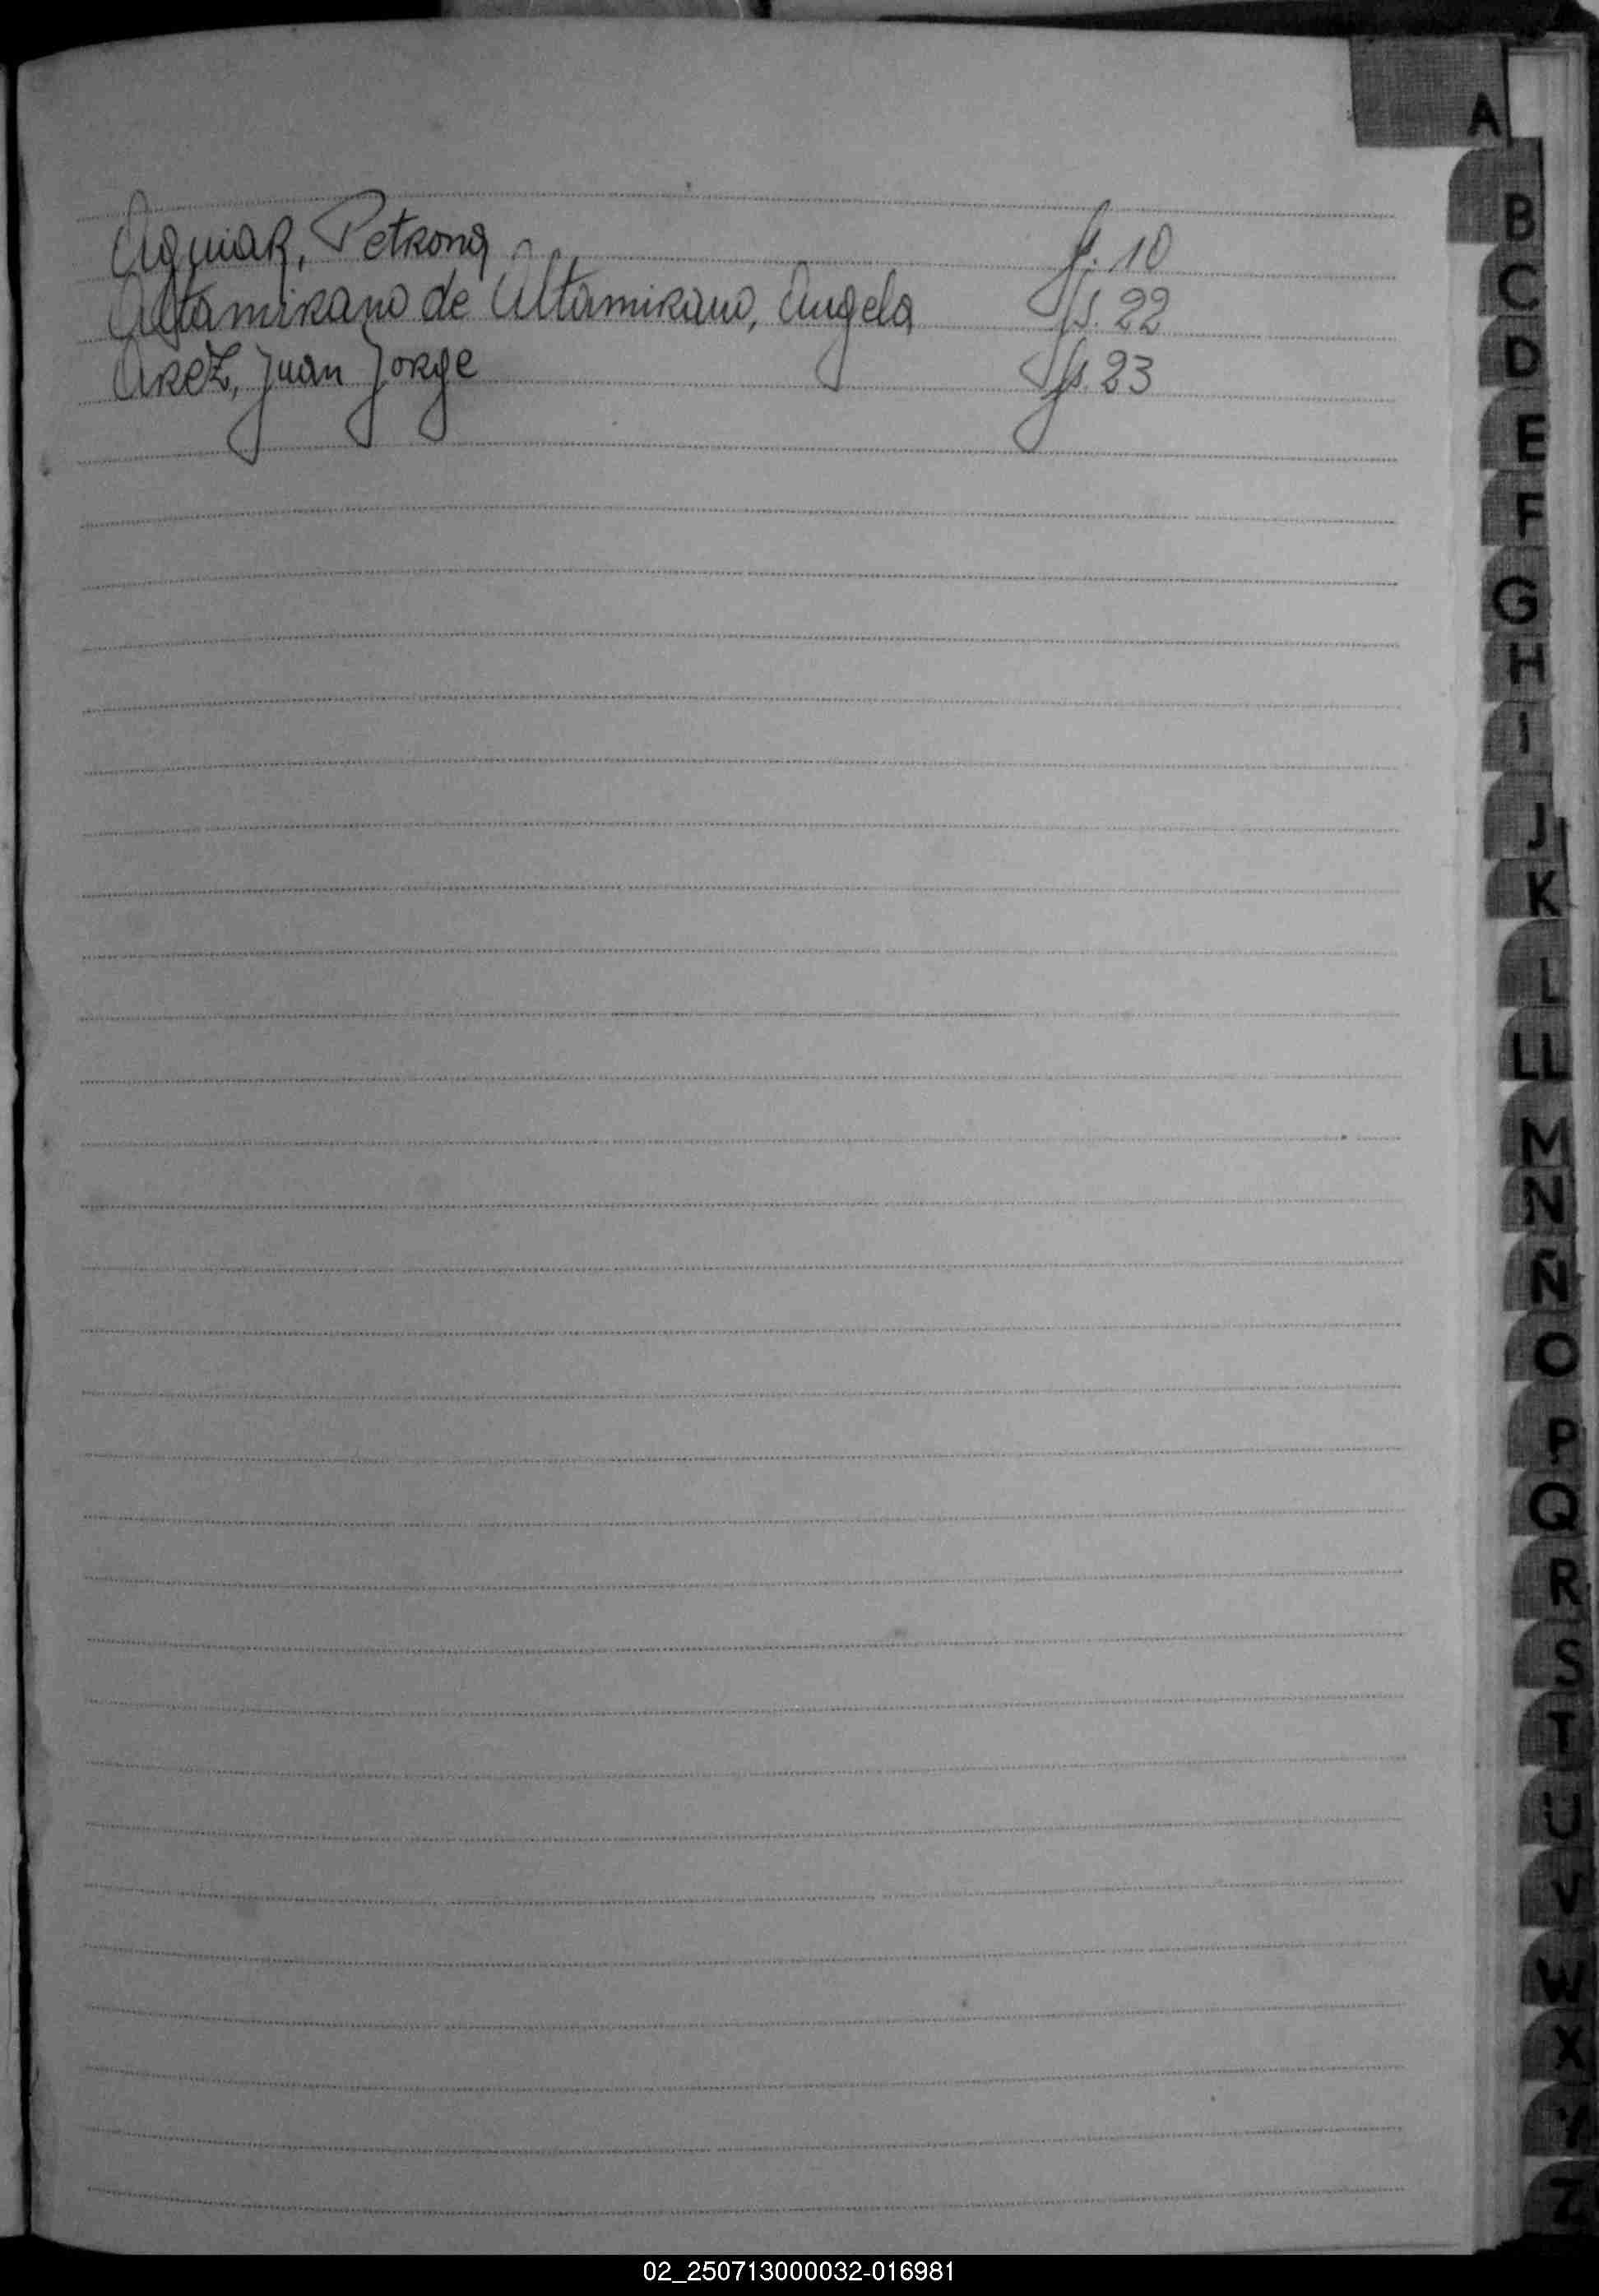 Aguiar, Petrona f. 10
Altamirano de Altamirano, Angela fs. 22
Arez, Juan Jorge fs. 23
A
B
C
D
E
F
G
H
I
J
K
L
LL
M
N
Ñ
O
P
Q
R
S
T
U
V
W
X
Y
Z
02_250713000032-016981